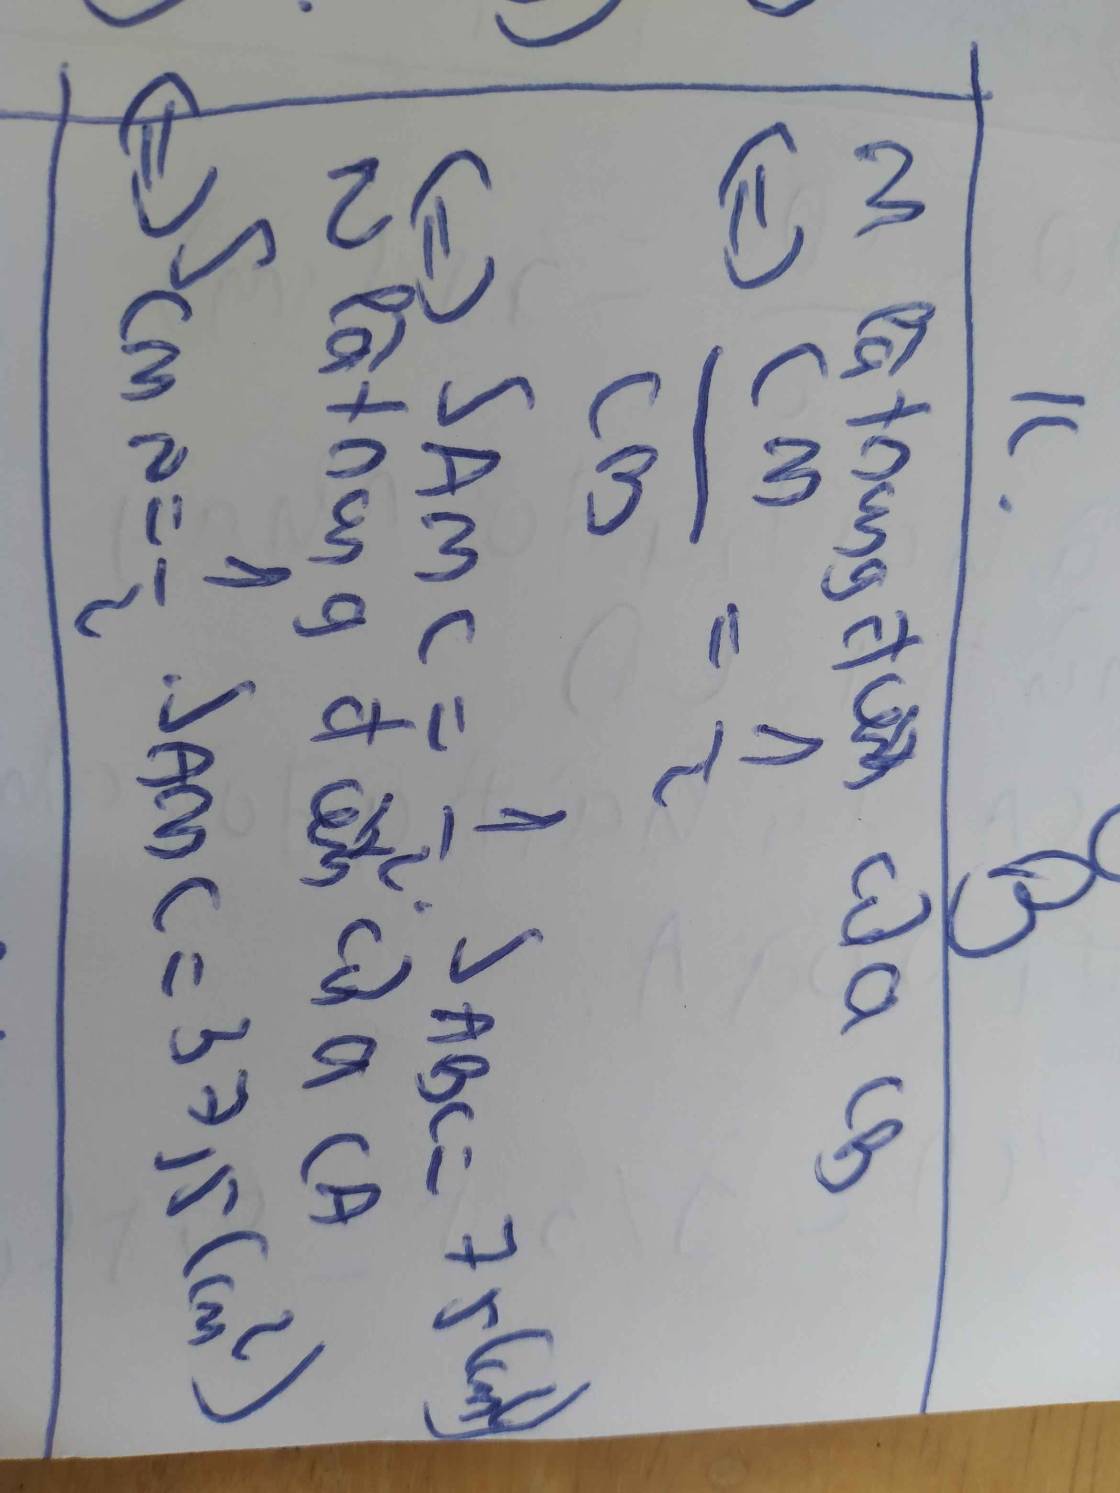 1c.
M là trung điểm của CB
⇔ CM/CB = 1/2
⇔ SAMC = 1/2 . SABC = 75(cm²)
N là trung điểm của CA
⇔ SCMN = 1/2 . SAMC = 37,5(cm²)